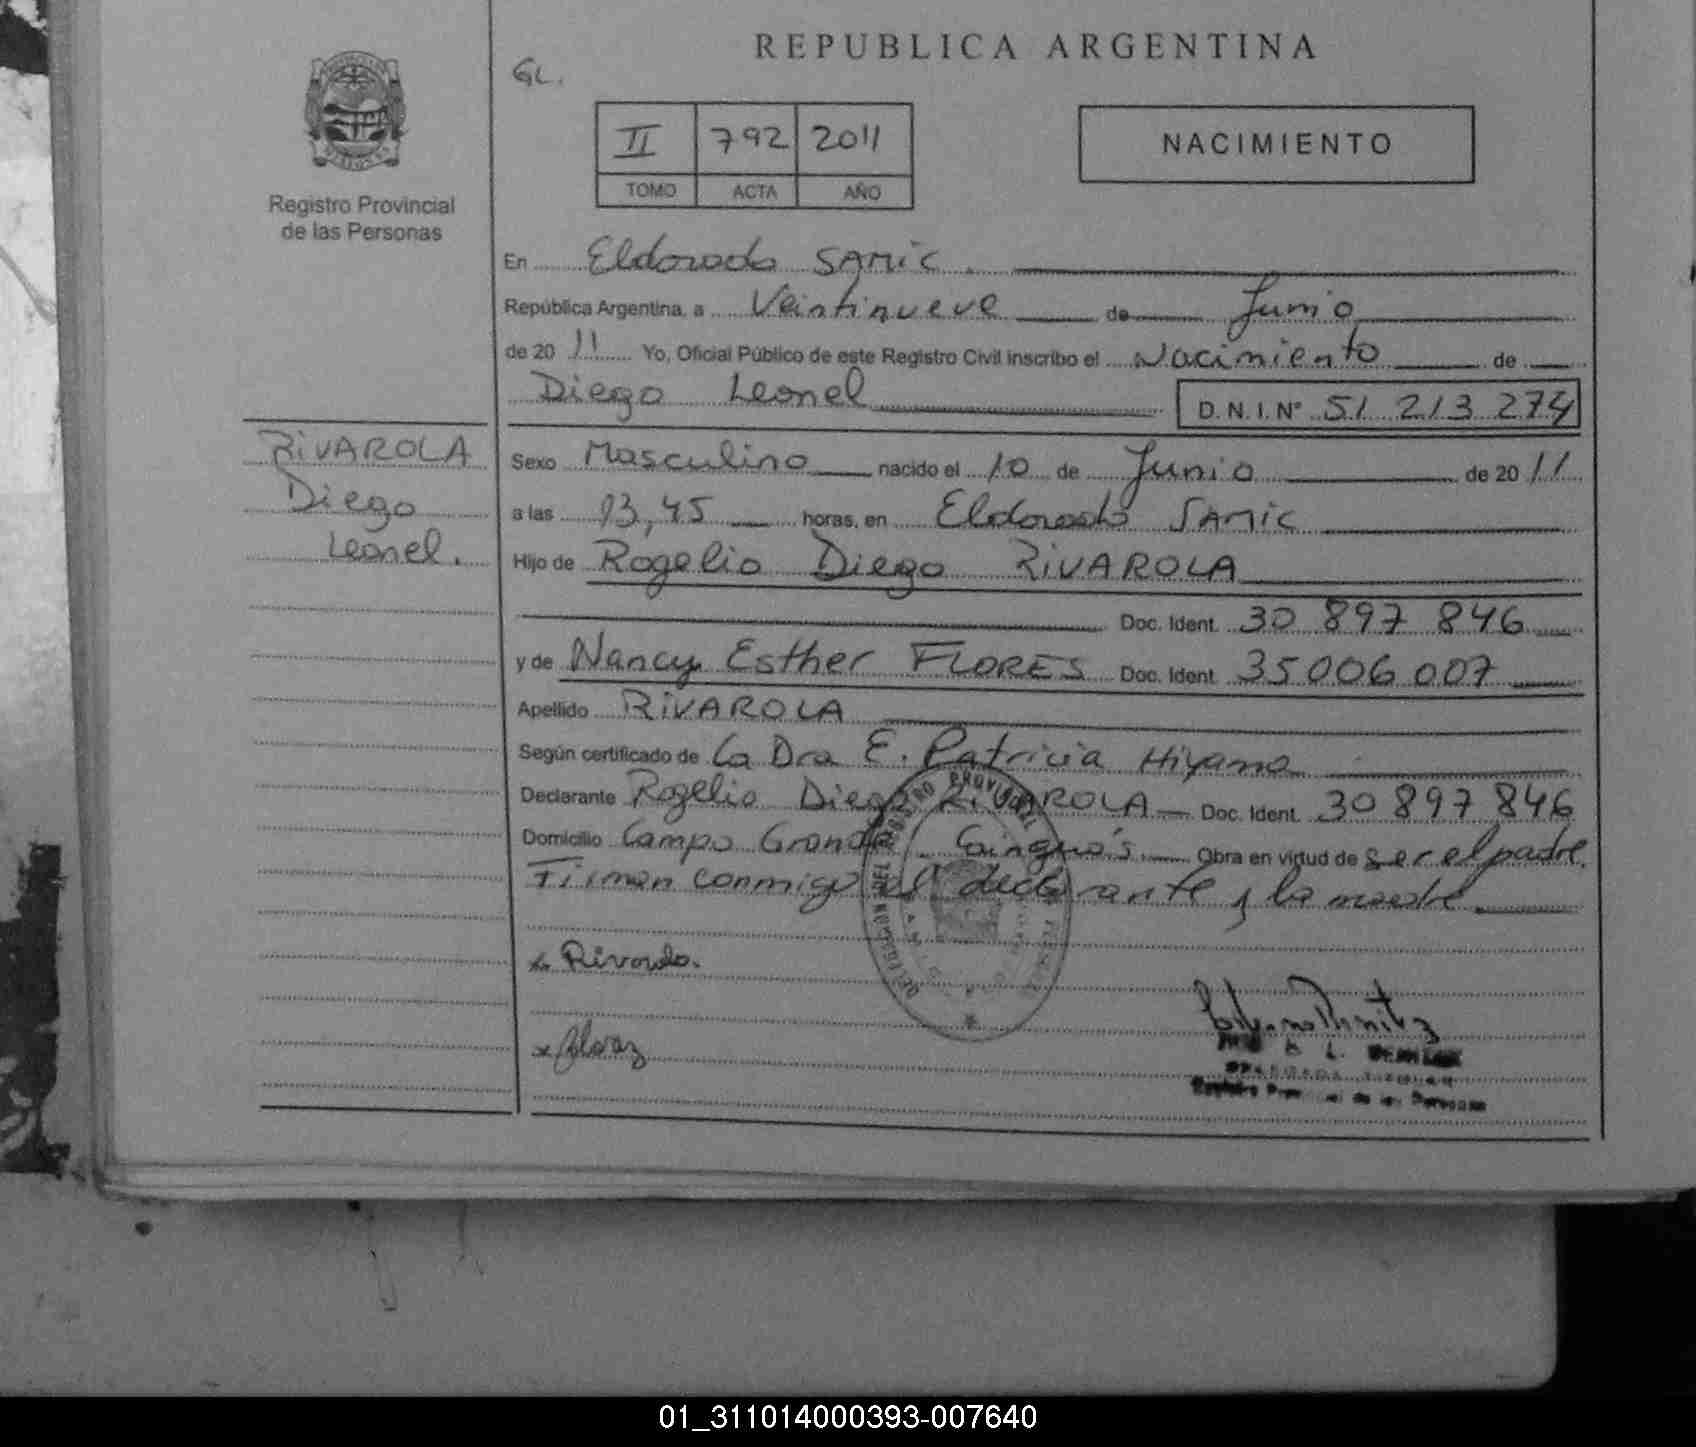 REPUBLICA ARGENTINA
GL.
II 792 2011
TOMO ACTA AÑO
NACIMIENTO
Registro Provincial
de las Personas
En Eldorado SAMIC.
República Argentina, a Veintinueve de Junio
de 2011 Yo, Oficial Público de este Registro Civil inscribo el Nacimiento de
Diego Leonel D.N.I.Nº 51 213 274
RIVAROLA
Diego
Leonel.
Sexo Masculino nacido el 10 de Junio de 2011
a las 13,45 horas, en Eldorado SAMIC
Hijo de Rogelio Diego RIVAROLA
Doc. Ident. 30 897 846
y de Nancy Esther FLORES Doc. Ident. 35006 007
Apellido RIVAROLA
Según certificado de la Dra E. Patricia Hiyama
Declarante Rogelio Diego RIVAROLA Doc. Ident. 30 897 846
Domicilio Campo Grande. Cainguás. Obra en virtud de ser el padre.
Firman conmigo el declarante y la madre
x Rivarola.
x
Registro Provincial de las Personas
DELEGACION DEL REGISTRO PROVINCIAL
01_311014000393-007640